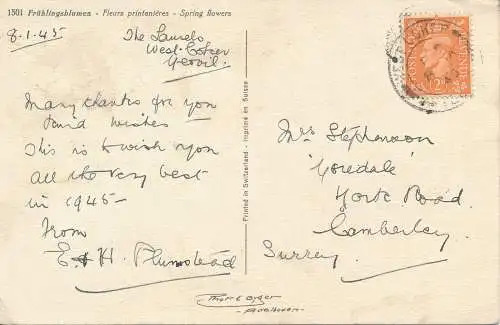 1501 Frühlingsblumen - Fleurs printanières - Spring flowers
8.1.45
The Laurels
West Coker
Yeovil
Many thanks for you
kind wishes
this is to wish you
all the very best
in 1945 -
from
E & H. Plumstead
Printed in Switzerland - Imprimé en Suisse
POSTAGE
Mrs Stephenson
"Yoredale"
York Road
Camberley
Surrey.